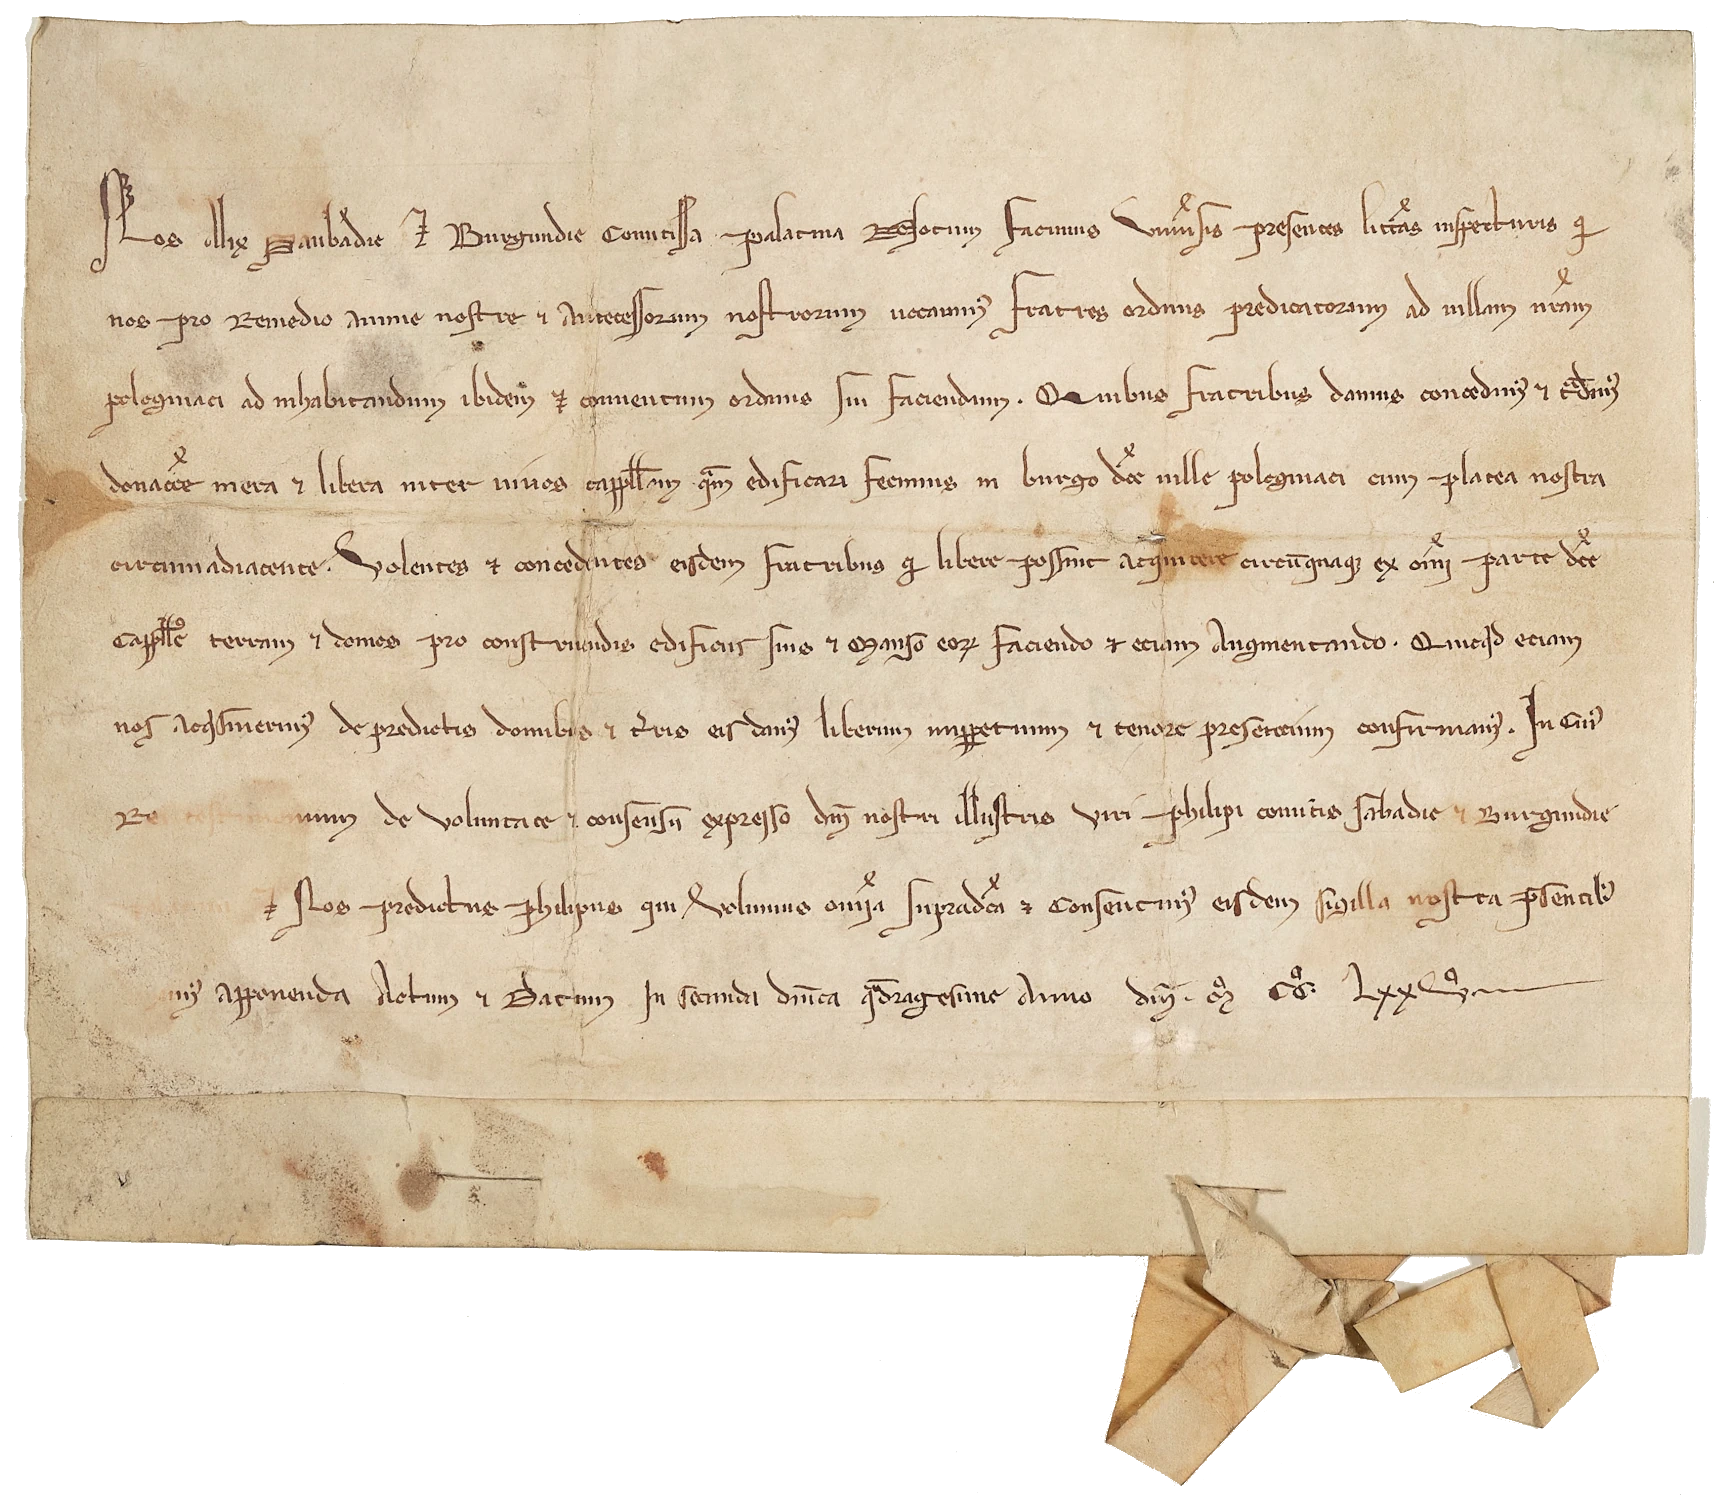 Nos Alix Saubadie ⁊ Burgundie Comitissa palatina Notum facimus Uniũsis presentes litt̃as inspecturis ꝙ
nos pro Remedio anime nostre ⁊ Antecessorum nostrorum uocauimꝰ fratres ordinis predicatorum ad uillam nr̃am
pologniaci ad inhabitandum ibidem ⁊ conuentum ordinis sui faciendum. Quibus fratribus damus concedimꝰ ⁊
donac̃õe mera ⁊ libera inter uiuos cappll̃am qm̃ edificari fecimus in burgo dc̃e uille pologniaci cum platea nostra
circumadiacente. Volentes ⁊ concedentes eisdem fratribus ꝙ libere possint acquirere circũquaqꝫ ex om̃i parte dc̃e
Cappll̃e terram ⁊ domos pro construendis edificiis suis ⁊ Manso eoꝝ faciendo ⁊ eciam Augmentando. Quicqͥd eciam
nos Acqͥsiuerimꝰ de predictis domibus ⁊ t̃ris eis damꝰ liberum imꝑpetuum ⁊ tenore presencium confirmamꝰ. In Cuiꝰ
Rei testimonium de Voluntate ⁊ consensu expresso dn̄i nostri illustris Viri philipi comitis sabaudie ⁊ Burgundie
⁊ Nos predictus philipus qui Volumus om̃ia supradc̃a ⁊ Consentimꝰ eisdem sigilla nostra p̃sentibꝰ
apponenda Actum ⁊ Datum In secunda dn̄ica qͣdragesime Anno dn̄i. mͦ CCͦ. Lxx